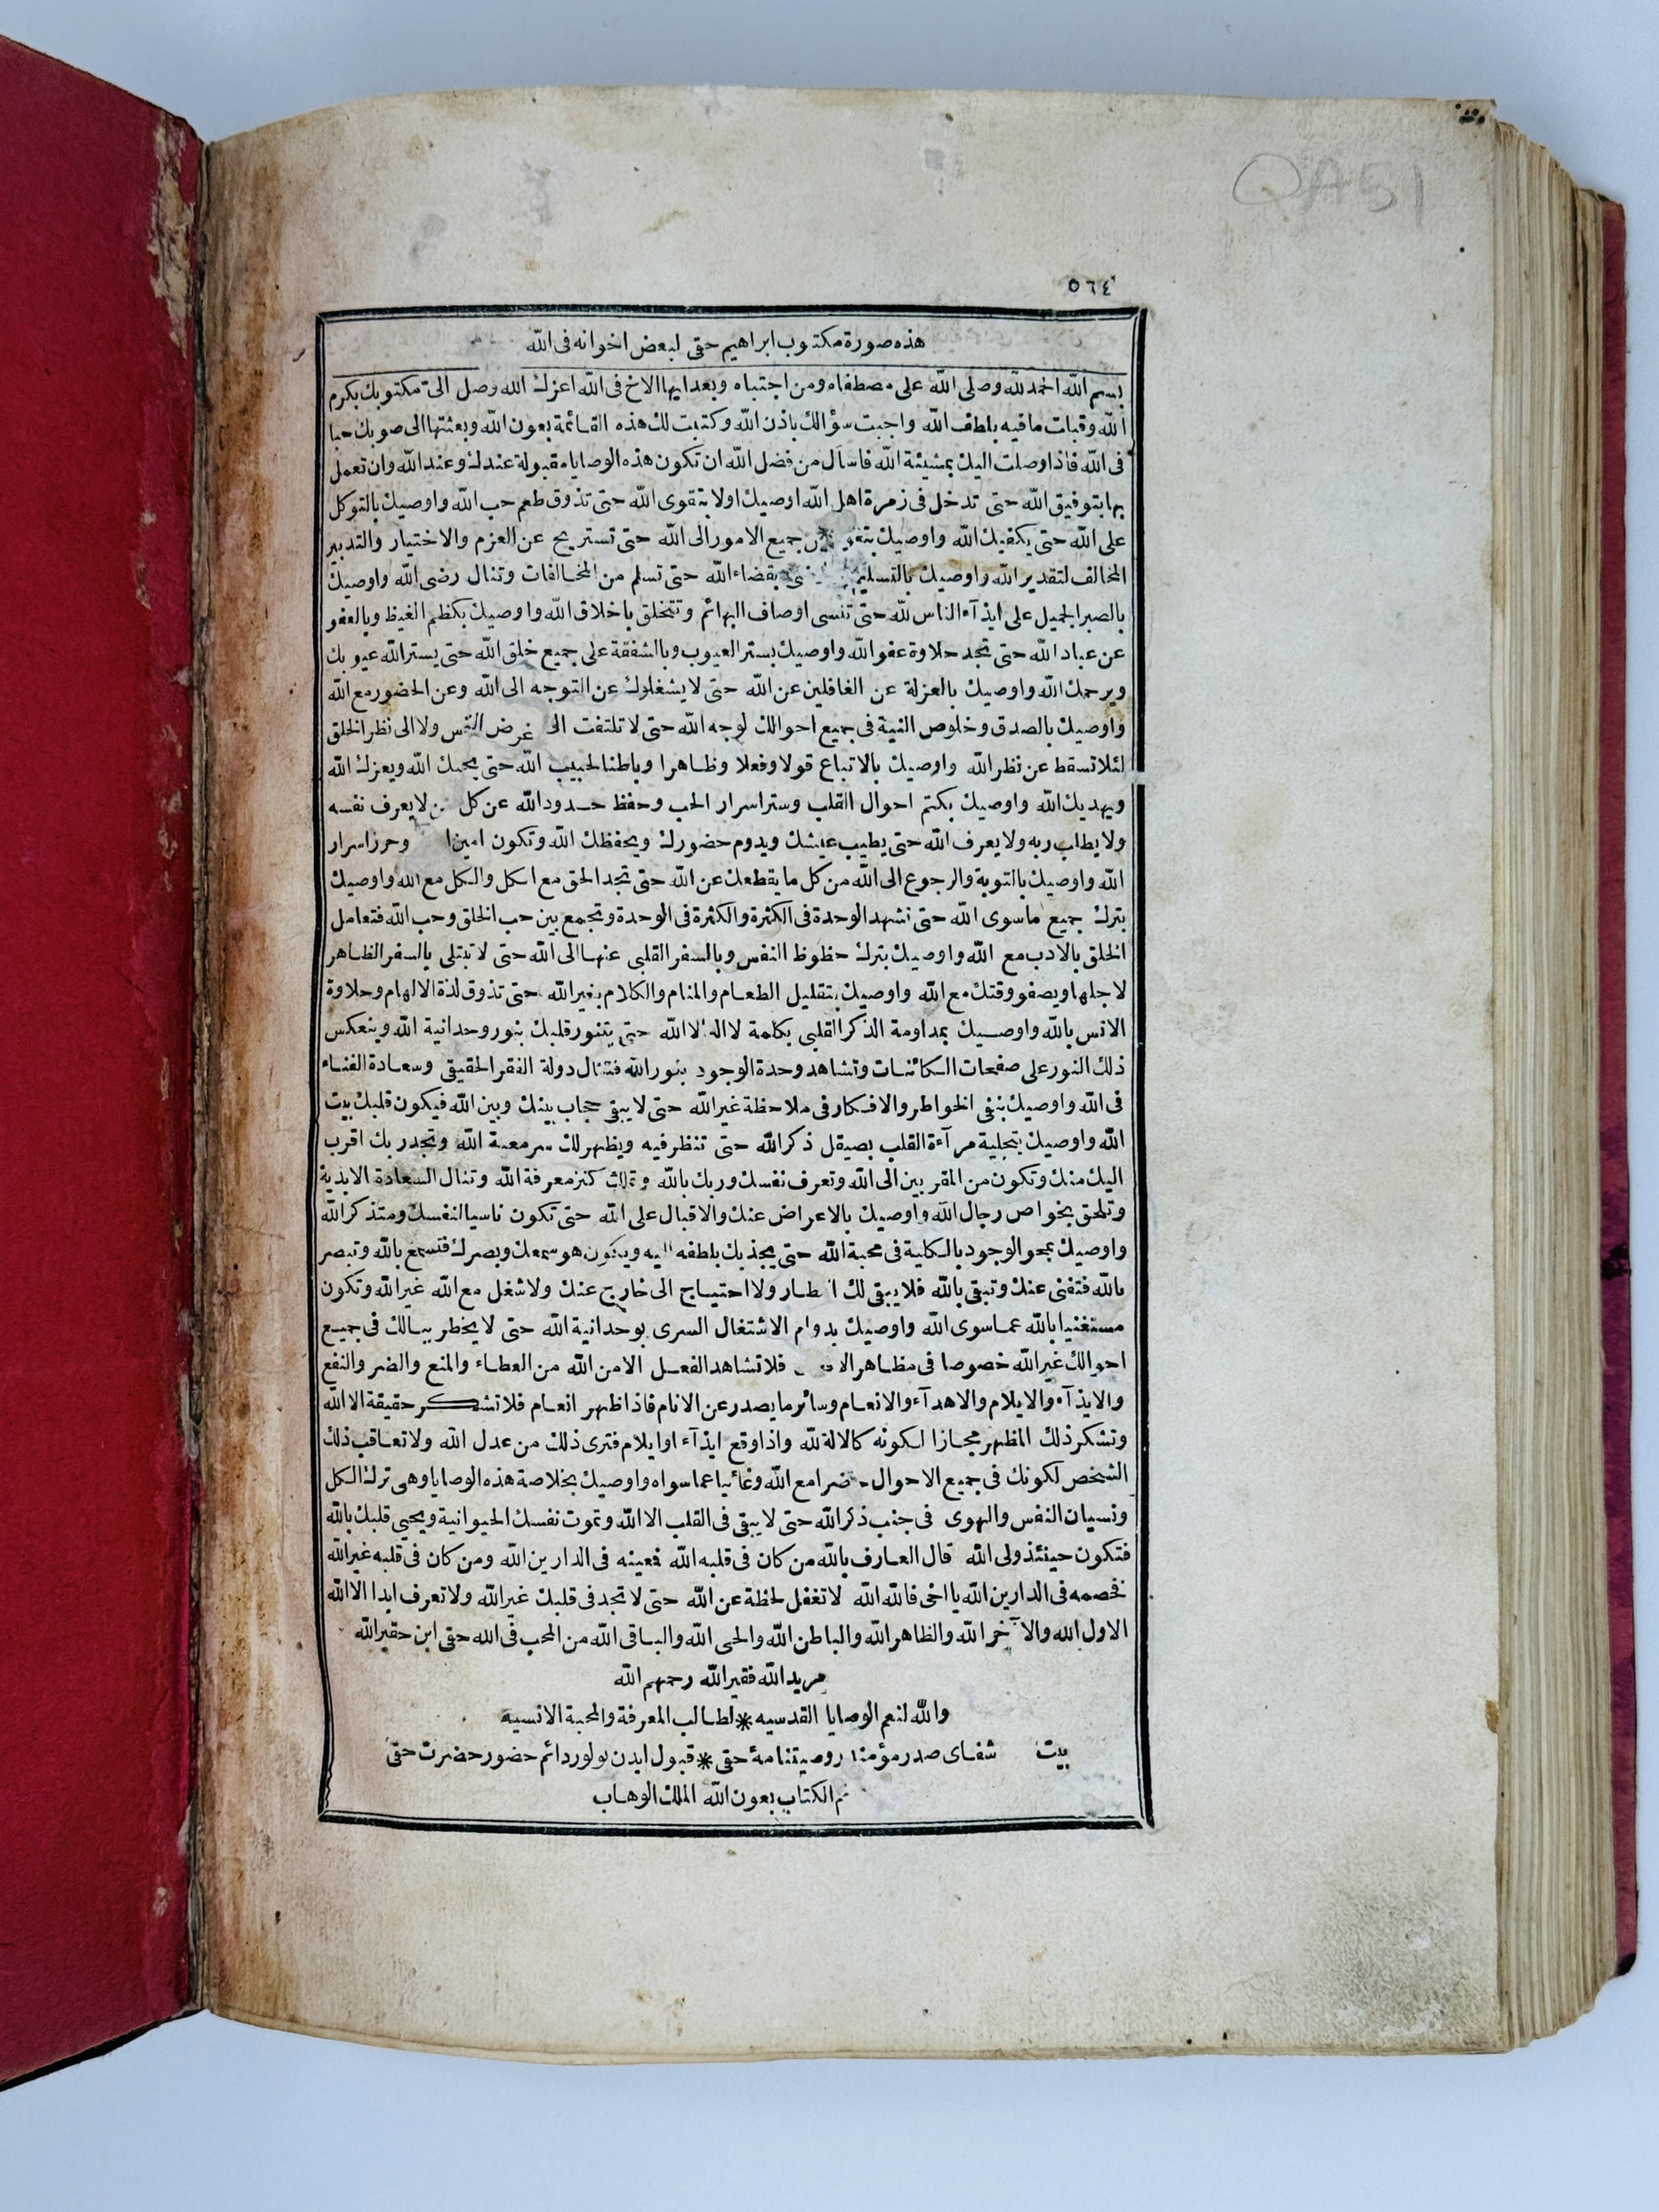 QA51
٥٦٤
هذه صورة مكتوب ابراهيم حقى لبعض اخوانه فى الله
بسم الله الحمد لله وصلى الله على مصطفاه ومن اجتباه وبعد ايها الاخ فى الله اعزك الله وصل الى مكتوبك بكرم
الله وقبات مافيه بلطف الله واجبت سؤالك باذن الله وكتبت لك هذه القائمة بعون الله وبعثتها الى صوبك حبا
فى الله فاذا وصلت اليك بمشيئة الله فاسأل من فضل الله ان تكون هذه الوصايا مقبولة عندك وعند الله وان تعمل
بها بتوفيق الله حتى تدخل فى زمرة اهل الله اوصيك اولا بتقوى الله حتى تذوق طعم حب الله واوصيك بالتوكل
على الله حتى يكفيك الله واوصيك جميع الامور الى الله حتى تستريح عن العزم والاختيار والتدبير
المخالف لتقدير الله واوصيك بالتسليم بقضاء الله حتى تسلم من المخالفات وتنال رضى الله واوصيك
بالصبر الجميل على ايذآء الناس لله حتى تنسى اوصاف البهائم وتتخلق باخلاق الله واوصيك بكظم الغيظ وبالعفو
عن عباد الله حتى تجد حلاوة عفو الله واوصيك بستر العيوب وبالشفقة على جميع خلق الله حتى يستر الله عيوبك
ويرحمك الله واوصيك بالعزلة عن الغافلين عن الله حتى لا يشغلوك عن التوجه الى الله وعن الحضور مع الله
واوصيك بالصدق وخلوص النية فى جميع احوالك لوجه الله حتى لا تلتفت الى غرض النفس ولا الى نظر الخلق
لئلا تسقط عن نظر الله واوصيك بالاتباع قولا وفعلا وظاهرا وباطنا لحبيب الله حتى يحبك الله ويعزك الله
ويهديك الله واوصيك بكتم احوال القلب وستر اسرار الحب وحفظ حدود الله عن كل من لا يعرف نفسه
ولا يطلب ربه ولا يعرف الله حتى يطيب عيشك ويدوم حضورك ويحفظك الله وتكون امينا وحرز اسرار
الله واوصيك بالتوبة والرجوع الى الله من كل ما يقطعك عن الله حتى تجد الحق مع الكل والكل مع الله واوصيك
بترك جميع ماسوى الله حتى تشهد الوحدة فى الكثرة والكثرة فى الوحدة وتجمع بين حب الخلق وحب الله فتعامل
الخلق بالادب مع الله واوصيك بترك حظوظ النفس وبالسفر القلبى عنها الى الله حتى لا تبتلى بالسفر الظاهر
لاجلها ويصفو وقتك مع الله واوصيك بتقليل الطعام والمنام والكلام بغير الله حتى تذوق لذة الالهام وحلاوة
الانس بالله واوصيك بمداومة الذكر القلبى بكلمة لا اله الا الله حتى يتنور قلبك بنور وحدانية الله وينعكس
ذلك النور على صفحات الكائنات وتشاهد وحدة الوجود بنور الله فتنال دولة الفقر الحقيقى وسعادة الفناء
فى الله واوصيك بنفى الخواطر والافكار فى ملاحظة غير الله حتى لا يبقى حجاب بينك وبين الله فيكون قلبك بيت
الله واوصيك بتجلية مرآءة القلب بصيقل ذكر الله حتى تنظر فيه ويظهر لك سر معية الله وتجد ربك اقرب
اليك منك وتكون من المقربين الى الله وتعرف نفسك وربك بالله وتملك كنز معرفة الله وتنال السعادة الابدية
وتلحق بخواص رجال الله واوصيك بالاعراض عنك والاقبال على الله حتى تكون ناسيا لنفسك ومتذكر الله
واوصيك بمحو الوجود بالكلية فى محبة الله حتى يجذبك بلطفه اليه ويكون هو سمعك وبصرك فتسمع بالله وتبصر
بالله فتفنى عنك وتبقى بالله فلا يبقى لك ولا احتياج الى خارج عنك ولا شغل مع الله غير الله وتكون
مستغنيا بالله عما سوى الله واوصيك بدوام الاشتغال السرى بوحدانية الله حتى لا يخطر ببالك فى جميع
احوالك غير الله خصوصا فى مظاهر فلا تشاهد الفعل الا من الله من العطاء والمنع والضر والنفع
والايذآء والايلام والاهدآء والانعام وسائر ما يصدر عن الانام فاذا ظهر انعام فلا تشكر حقيقة الا الله
وتشكر ذلك المظهر مجازا لكونه كالالة لله واذا وقع ايذآء او ايلام فترى ذلك من عدل الله ولا تعاقب ذلك
الشخص لكونك فى جميع الاحوال حاضرا مع الله وغائبا عما سواه واوصيك بخلاصة هذه الوصايا وهى ترك الكل
ونسيان النفس والهوى فى جنب ذكر الله حتى لا يبقى فى القلب الا الله وتموت نفسك الحيوانية ويحيى قلبك بالله
فتكون حينئذ ولى الله قال العارف بالله من كان فى قلبه الله فعينه فى الدارين الله ومن كان فى قلبه غير الله
فخصمه فى الدارين الله يا اخى فالله الله لا تغفل لحظة عن الله حتى لا تجد فى قلبك غير الله ولا تعرف ابدا الا الله
الاول الله والآخر الله والظاهر الله والباطن الله والحى الله والباقى الله من المحب فى الله حقى ابن حقير الله
مريد الله فقير الله رحمهم الله
والله لنعم الوصايا القدسيه * لطالب المعرفة والمحبة الانسيه
بيت شفاى صدر مؤمندر وصيتنامۀ حقى * قبول ايدن بولور دائم حضور حضرت حقى
تم الكتاب بعون الله الملك الوهاب